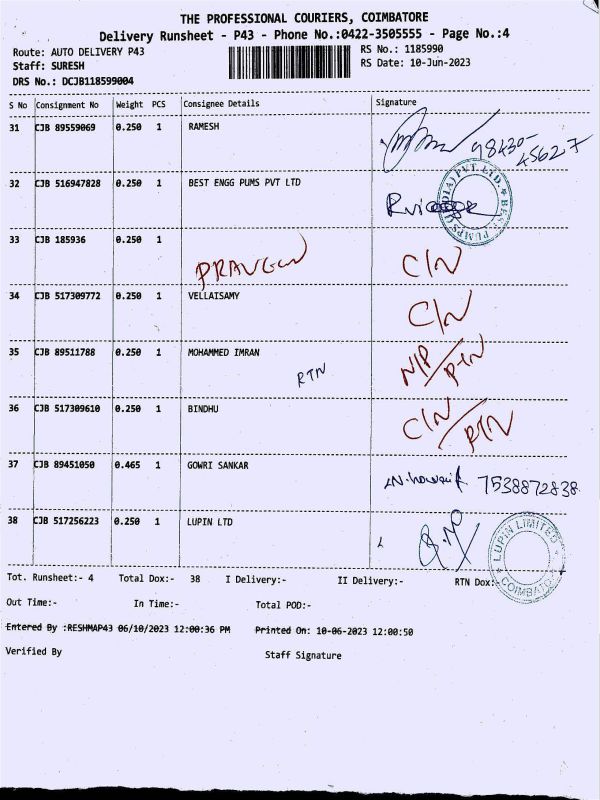 THE PROFESSIONAL COURIERS, COIMBATORE
Delivery Runsheet - P43 - Phone No.:0422-3505555 - Page No.:4
Route: AUTO DELIVERY P43 RS No.: 1185990
Staff: SURESH RS Date: 10-Jun-2023
DRS No.: DCJB118599004
S No Consignment No Weight PCS Consignee Details Signature
31 CJB 89559069 0.250 1 RAMESH 98430-
45627
32 CJB 516947828 0.250 1 BEST ENGG PUMS PVT LTD
33 CJB 185936 0.250 1 PRAVEEN C/N
34 CJB 517309772 0.250 1 VELLAISAMY C/N
35 CJB 89511788 0.250 1 MOHAMMED IMRAN RTN N/P/RTN
36 CJB 517309610 0.250 1 BINDHU C/N/RTN
37 CJB 89451050 0.465 1 GOWRI SANKAR 7538872838
38 CJB 517256223 0.250 1 LUPIN LTD LUPIN LIMITED
Tot. Runsheet:- 4 Total Dox:- 38 I Delivery:- II Delivery:- RTN Dox:-
Out Time:- In Time:- Total POD:-
Entered By :RESHMAP43 06/10/2023 12:00:36 PM Printed On: 10-06-2023 12:00:50
Verified By Staff Signature